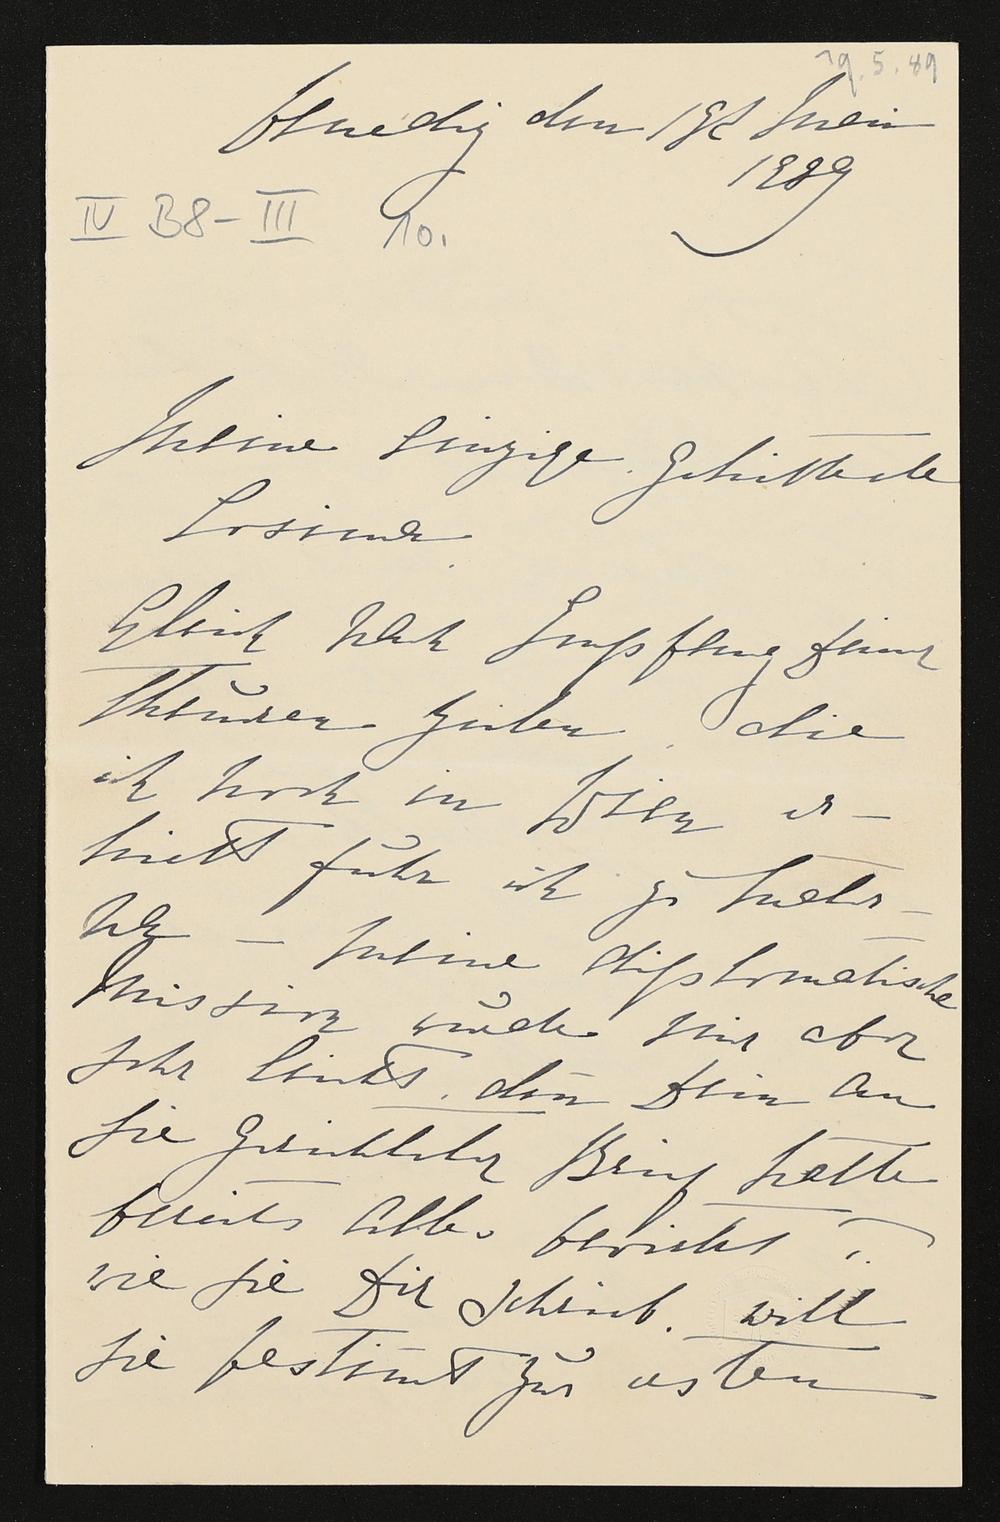 19.5.89
Venedig den 19t Mai
1889
IV B8-III 10.
Meine Einzige Geliebteste
Cosima
Gleich nach Empfang Deiner
theuren Zeilen die
ich noch in Wien er-
hielt fuhr ich zu
– meine diplomatische
Mission wurde mir aber
sehr leicht, den̄ Dein an
sie gerichteter Brief hatte
bereits Alles bewirkt
wie sie Dir schrieb. will
sie bestim̄t zur ersten